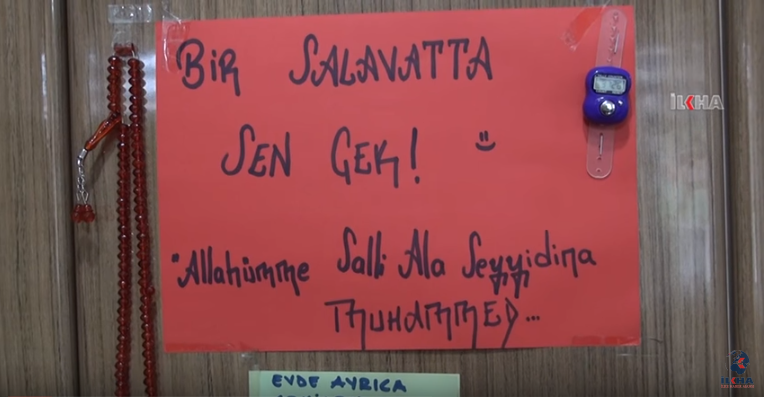 BİR SALAVATTA
SEN ÇEK!
"Allahümme Salli Ala Seyyidina
MUHAMMED...
İLKHA
EVDE AYRICA
İLKHA